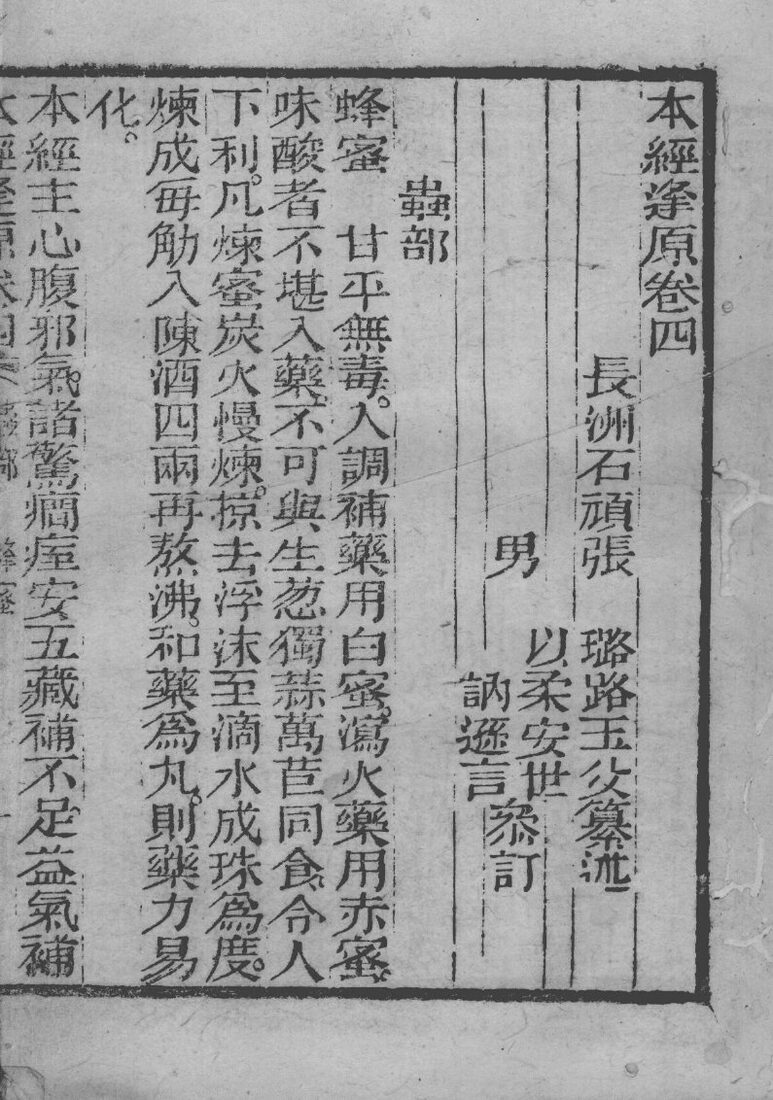 本經逢原卷四
長洲石頑張　璐路玉父纂述
男　以柔安世
訥遜言
叅訂
蟲部
蜂蜜　甘平無毒。入調補藥用白蜜。瀉火藥用赤蜜。
味酸者不堪入藥。不可與生葱獨蒜萵苣同食。令人
下利。凡煉蜜炭火慢煉。掠去浮沫至滴水成珠爲度。
煉成每觔入陳酒四兩再熬沸。和藥爲丸。則藥力易
化。
本經主心腹邪氣。諸驚癎痓安五藏補不足益氣補
本經逢原卷四 蟲部 蜂蜜